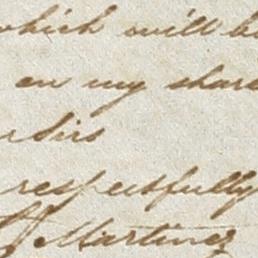 which will b
on my share
Sirs
respectfully
Martinez